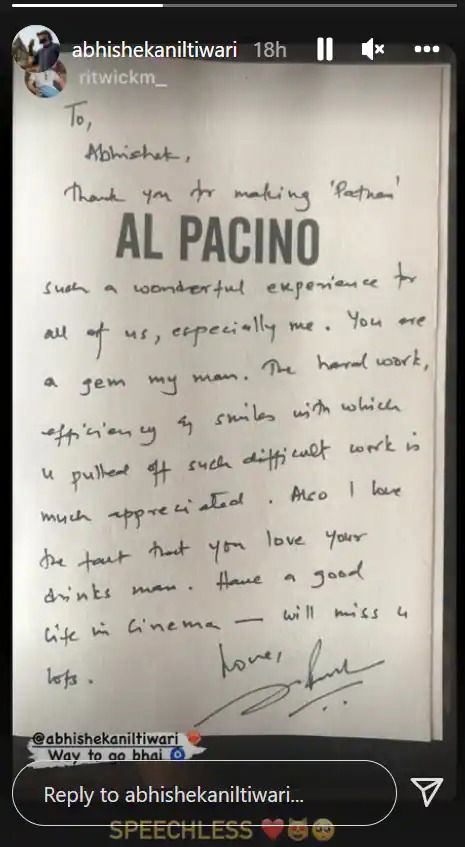 abhishekaniltiwari 18h
ritwickm_
To,
Abhishek,
Thank you for making 'Pathaan'
AL PACINO
such a wonderful experience for
all of us, especially me. You are
a gem my man. The hard work,
efficiency & smiles with which
u pulled off such difficult work is
much appreciated. Also I love
the fact that you love your
drinks man. Have a good
life in cinema — will miss u
lots.
Love,
@abhishekaniltiwari
Way to go bhai 🧿
Reply to abhishekaniltiwari...
SPEECHLESS ❤️😻🥺